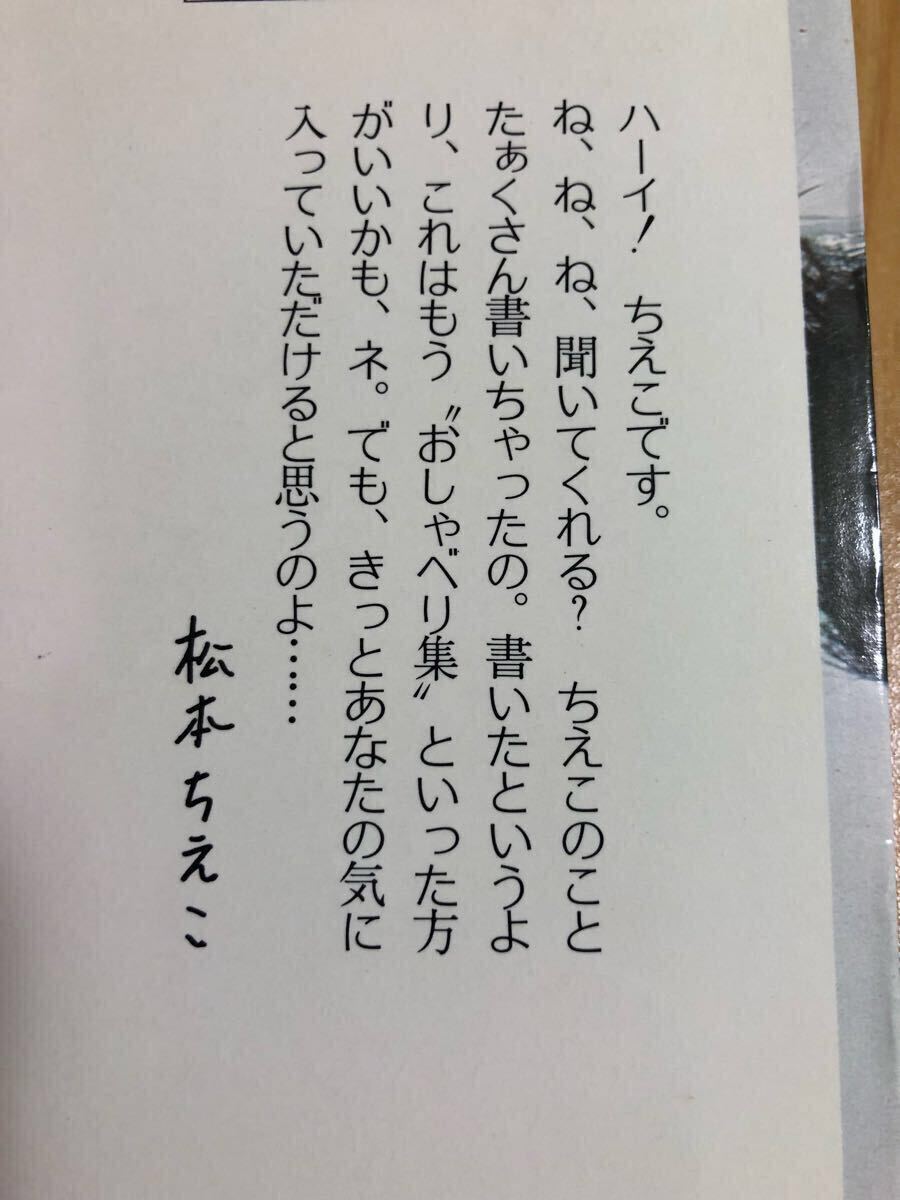 ハーイ! ちえこです。
ね、ね、ね、聞いてくれる? ちえこのこと
たぁくさん書いちゃったの。書いたというよ
り、これはもう〝おしゃべり集〟といった方
がいいかも、ネ。でも、きっとあなたの気に
入っていただけると思うのよ……
松本ちえこ